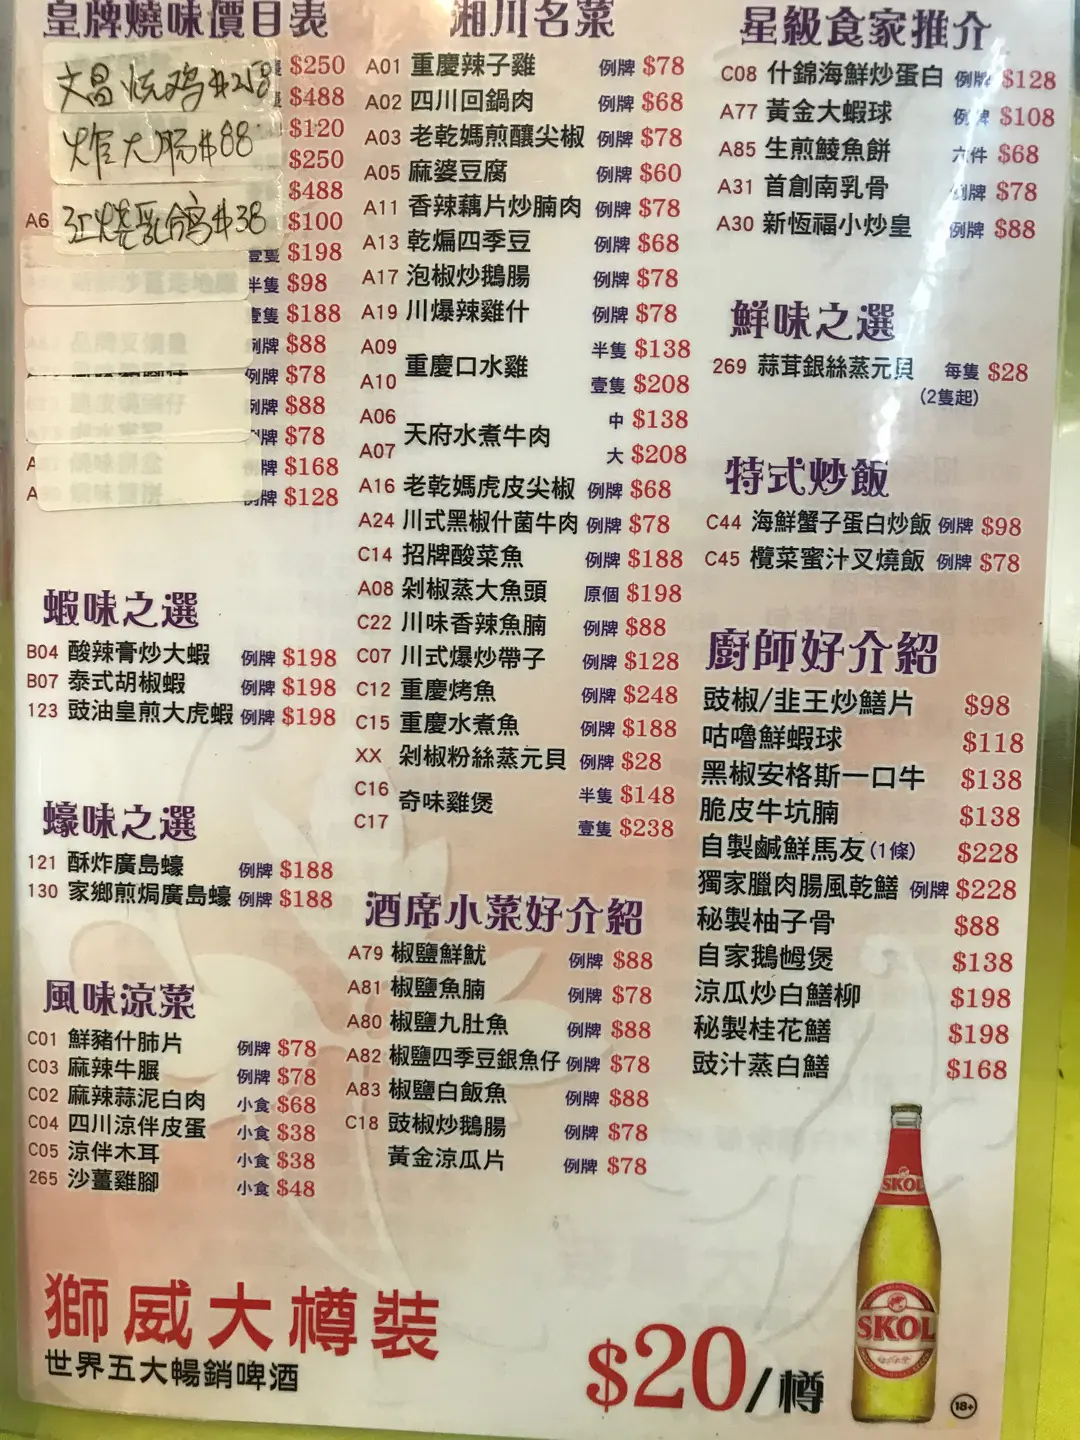 皇牌燒味價目表
$250
文昌烧鸡$258
$488
$120
炸大肠$88
$250
$488
A6 红烧乳鸽$38 $100
壹隻 $198
半隻 $98
壹隻 $188
例牌 $88
例牌 $78
例牌 $88
例牌 $78
例牌 $168
例牌 $128
蝦味之選
B04 酸辣膏炒大蝦 例牌 $198
B07 泰式胡椒蝦 例牌 $198
123 豉油皇煎大虎蝦 例牌 $198
蠔味之選
121 酥炸廣島蠔 例牌 $188
130 家鄉煎焗廣島蠔 例牌 $188
風味涼菜
C01 鮮豬什肺片 例牌 $78
C03 麻辣牛𦟌 例牌 $78
C02 麻辣蒜泥白肉 小食 $68
C04 四川涼伴皮蛋 小食 $38
C05 涼伴木耳 小食 $38
265 沙薑雞腳 小食 $48
湘川名菜
A01 重慶辣子雞 例牌 $78
A02 四川回鍋肉 例牌 $68
A03 老乾媽煎釀尖椒 例牌 $78
A05 麻婆豆腐 例牌 $60
A11 香辣藕片炒腩肉 例牌 $78
A13 乾煸四季豆 例牌 $68
A17 泡椒炒鵝腸 例牌 $78
A19 川爆辣雞什 例牌 $78
A09 半隻 $138
重慶口水雞
A10 壹隻 $208
A06 中 $138
天府水煮牛肉
A07 大 $208
A16 老乾媽虎皮尖椒 例牌 $68
A24 川式黑椒什菌牛肉 例牌 $78
C14 招牌酸菜魚 例牌 $188
A08 剁椒蒸大魚頭 原個 $198
C22 川味香辣魚腩 例牌 $88
C07 川式爆炒帶子 例牌 $128
C12 重慶烤魚 例牌 $248
C15 重慶水煮魚 例牌 $188
XX 剁椒粉絲蒸元貝 例牌 $28
C16 半隻 $148
奇味雞煲
C17 壹隻 $238
酒席小菜好介紹
A79 椒鹽鮮魷 例牌 $88
A81 椒鹽魚腩 例牌 $78
A80 椒鹽九肚魚 例牌 $88
A82 椒鹽四季豆銀魚仔 例牌 $78
A83 椒鹽白飯魚 例牌 $88
C18 豉椒炒鵝腸 例牌 $78
黃金涼瓜片 例牌 $78
星級食家推介
C08 什錦海鮮炒蛋白 例牌 $128
A77 黃金大蝦球 例牌 $108
A85 生煎鯪魚餅 六件 $68
A31 首創南乳骨 例牌 $78
A30 新恆福小炒皇 例牌 $88
鮮味之選
269 蒜茸銀絲蒸元貝 每隻 $28
(2隻起)
特式炒飯
C44 海鮮蟹子蛋白炒飯 例牌 $98
C45 欖菜蜜汁叉燒飯 例牌 $78
廚師好介紹
豉椒/韭王炒鱔片 $98
咕嚕鮮蝦球 $118
黑椒安格斯一口牛 $138
脆皮牛坑腩 $138
自製鹹鮮馬友(1條) $228
獨家臘肉腸風乾鱔 例牌 $228
秘製柚子骨 $88
自家鵝乸煲 $138
涼瓜炒白鱔柳 $198
秘製桂花鱔 $198
豉汁蒸白鱔 $168
獅威大樽裝
世界五大暢銷啤酒
$20/樽
SKOL
SKOL
18+